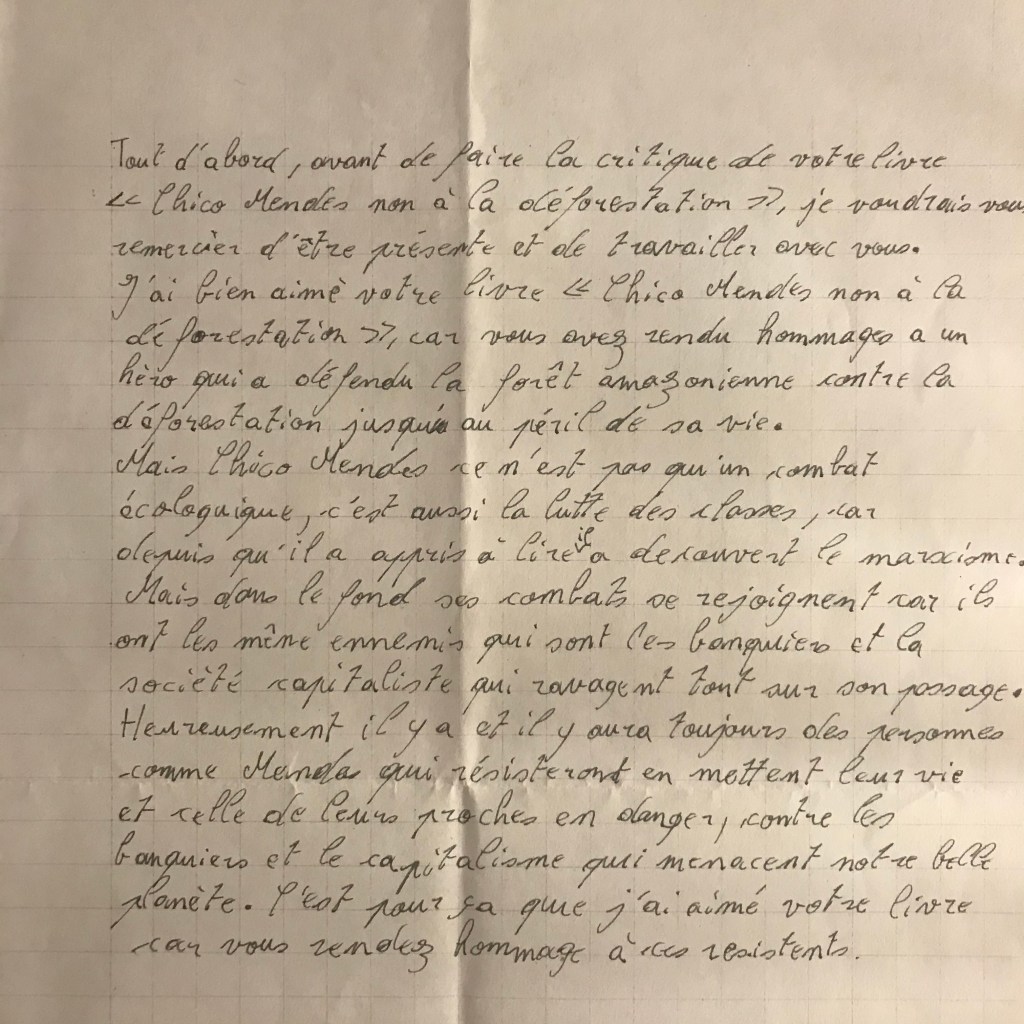 Tout d'abord, avant de faire la critique de votre livre
<< Chico Mendes non à la déforestation >>, je voudrais vous
remercier d'être présente et de travailler avec vous.
J'ai bien aimé votre livre << Chico Mendes non à la
déforestation >>, car vous avez rendu hommages a un
hèro qui a défendu la forêt amazonienne contre la
déforestation jusqu'a au péril de sa vie.
Mais Chico Mendes ce n'est pas qu'un combat
écologuique, c'est aussi la lutte des classes, car
depuis qu'il a appris à lire il a decouvert le marxisme.
Mais dans le fond ses combats se rejoignent car ils
ont les même ennemis qui sont les banquiers et la
société capitaliste qui ravagent tout sur son passage.
Heureusement il y a et il y aura toujours des personnes
comme Mendes qui résisteront en mettent leur vie
et celle de leurs proches en danger, contre les
banquiers et le capitalisme qui menacent notre belle
planète. C'est pour ça que j'ai aimé votre livre
car vous rendez hommage à ces resistents.